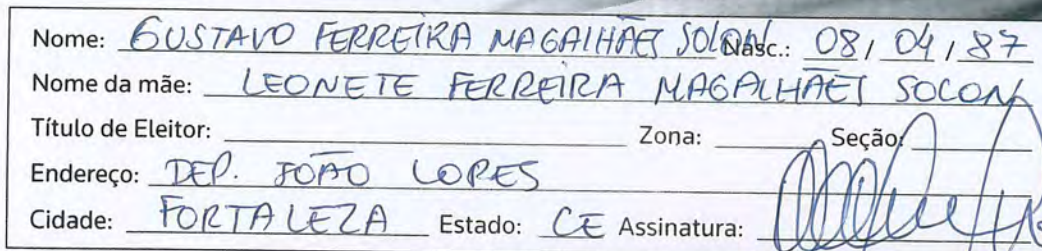 Nome: GUSTAVO FERREIRA MAGALHÃES SOLON Nasc.: 08/04/87
Nome da mãe: LEONETE FERREIRA MAGALHÃES SOLON
Título de Eleitor: Zona: Seção:
Endereço: DEP. JOÃO LOPES
Cidade: FORTALEZA Estado: CE Assinatura: